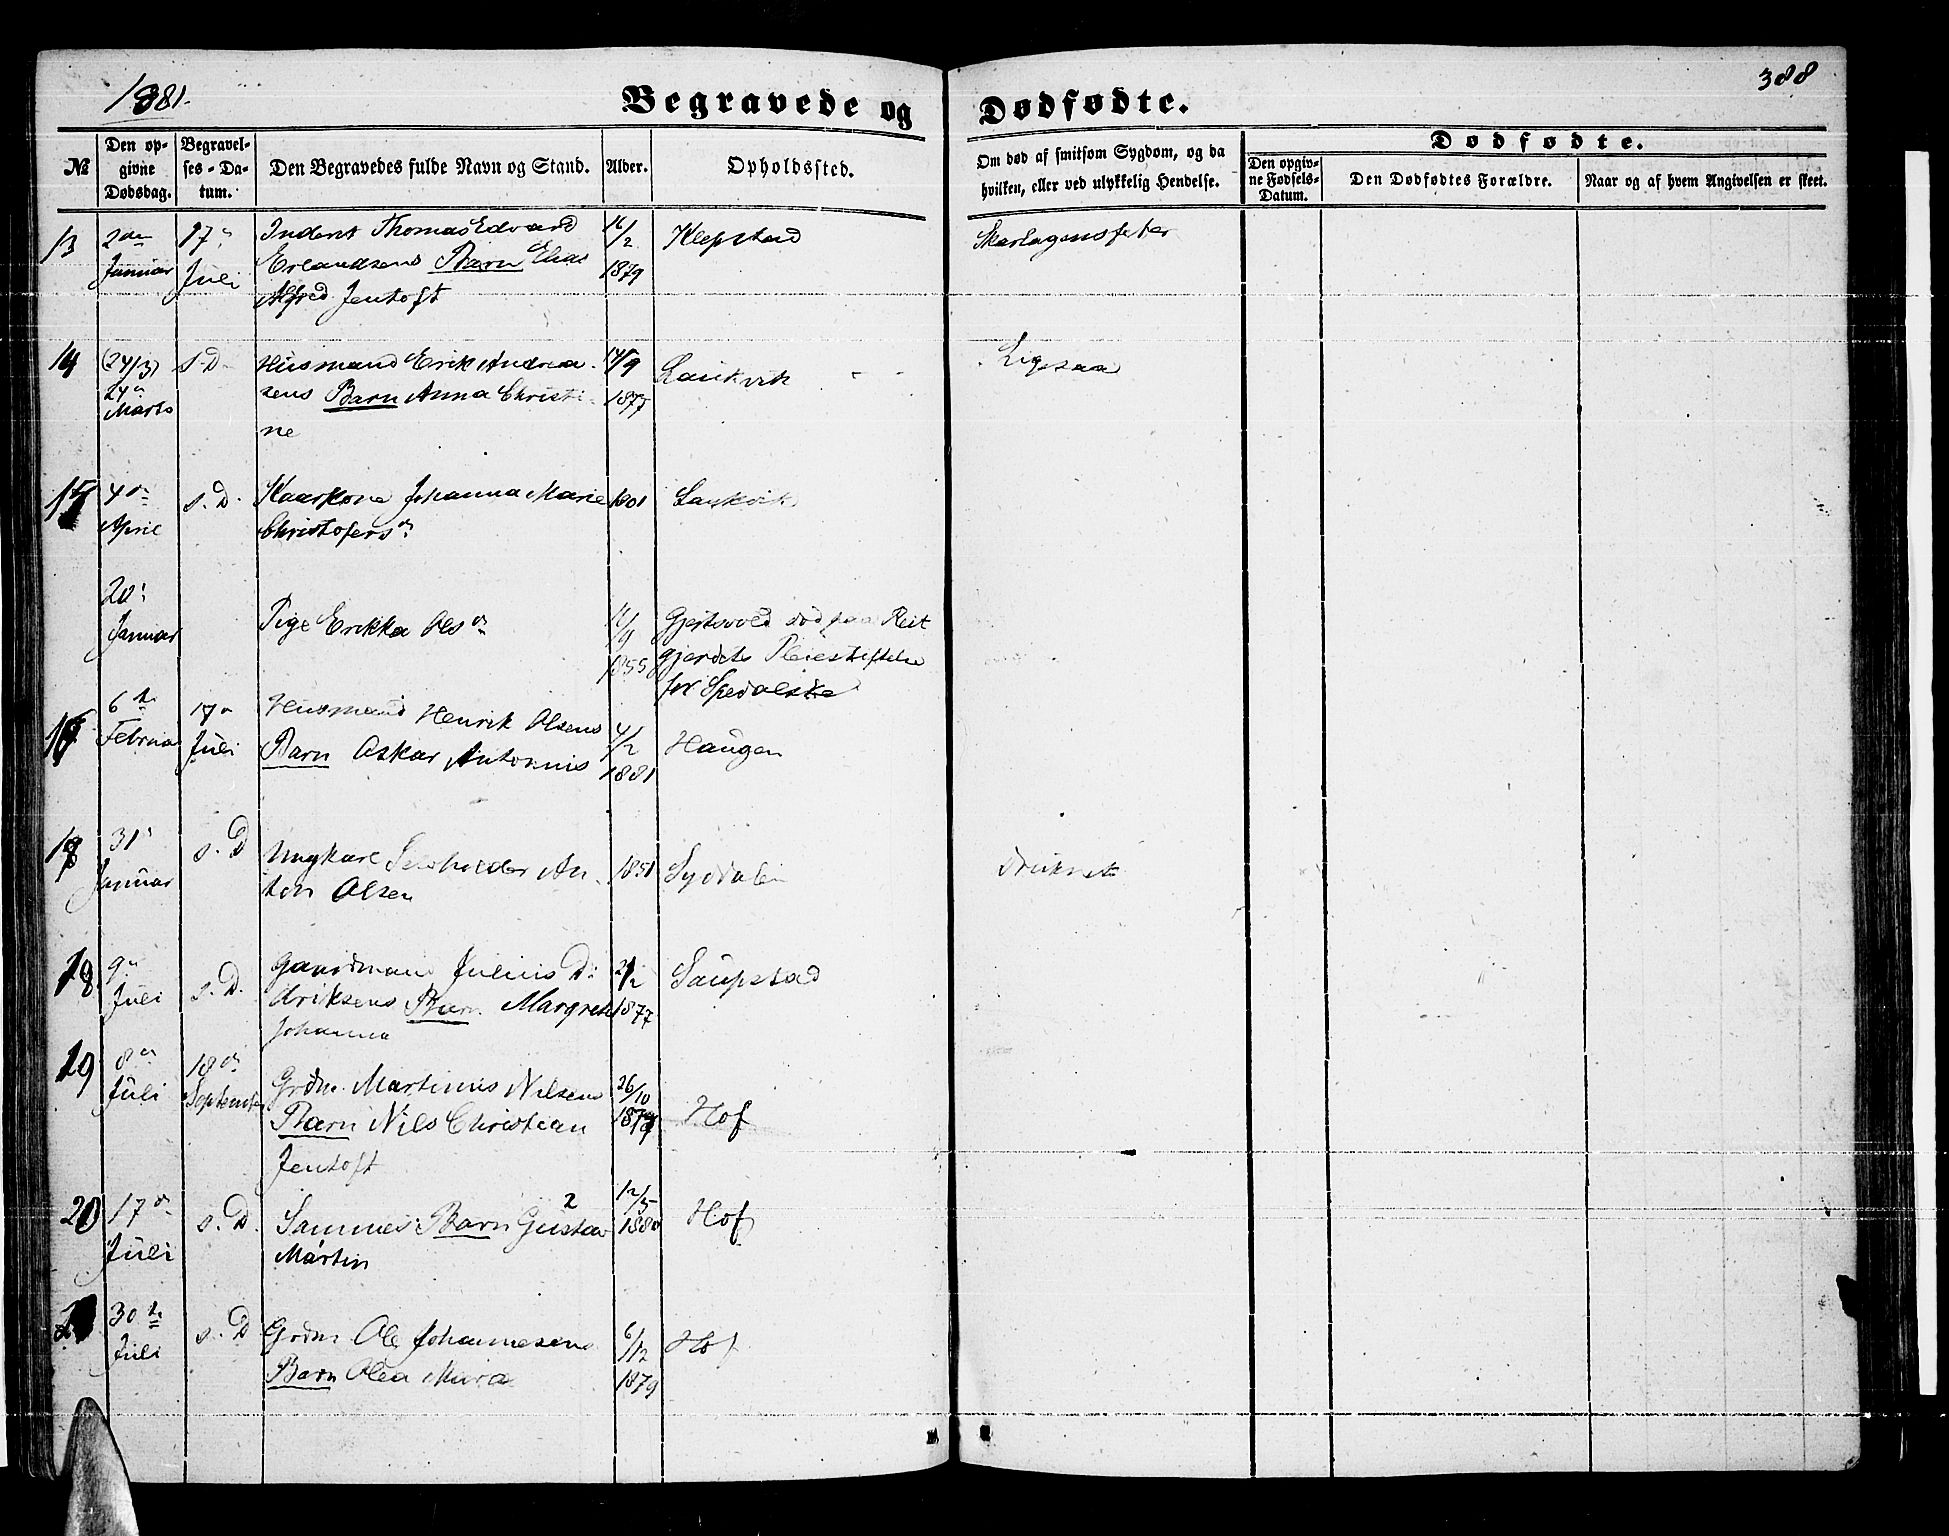 1881.
388
Begravede og Dødfødte.
№
Den op-
givne
Dødsdag.
Begravel-
ses-Da-
tum.
Den Begravedes fulde Navn og Stand.
Alder.
Opholdssted.
Om død af smitsom Sygdom, og da
hvilken, eller ved ulykkelig Hendelse.
Dødfødte.
Den opgiv-
ne Fødsels-
Datum.
Den Dødfødtes Forældre.
Naar og af hvem Angivelsen er skeet.
13
2den
Januar
17de
Juli
Inderst Thomas Edvard
Erlandsens Barn Elias
Alfred Jentoft
16/2
1879
Klepstad
Skarlagensfeber
14
(24/3)
24de
Marts
s. D.
Husmand Erik Andrea
sens Barn Anna Christi
ne
14/9
1877
Laukvik
Ligesaa
15
4de
April
s. D.
Kaarkone Johanna Marie
Christofersdr
1801
Laukvik
20de
Januar
Pige Erikka Olsdr
11/9
1855
Gjertsvold død paa Reit
gjerdets Pleiestiftelse
for Spedalske
16
6te
Februar
17de
Juli
Husmand Henrik Olsens
Barn Oskar Antonius
4/2
1881
Haugen
17
31de
Januar
s. D
Ungkarl Selvholder An
ton Olsen
1851
Sydalen
Druknet
18
9de
Juli
s. D.
Gaardmand Julius Di
driksens Barn Margrete
Johanna
1877
Saupstad
19
8de
Juli
18de
September
Grdm. Martinus Nilsens
Barn Nils Christian
Jentoft
26/10
1879
Hof
20
17de
Juli
s. D.
Sammes Barn 2 Gustav
Martin
12/5
1880
Hof
30te
Juli
s. D
Grdm Ole Johannesens
Barn Olea Maria
6/12
1879
Hof